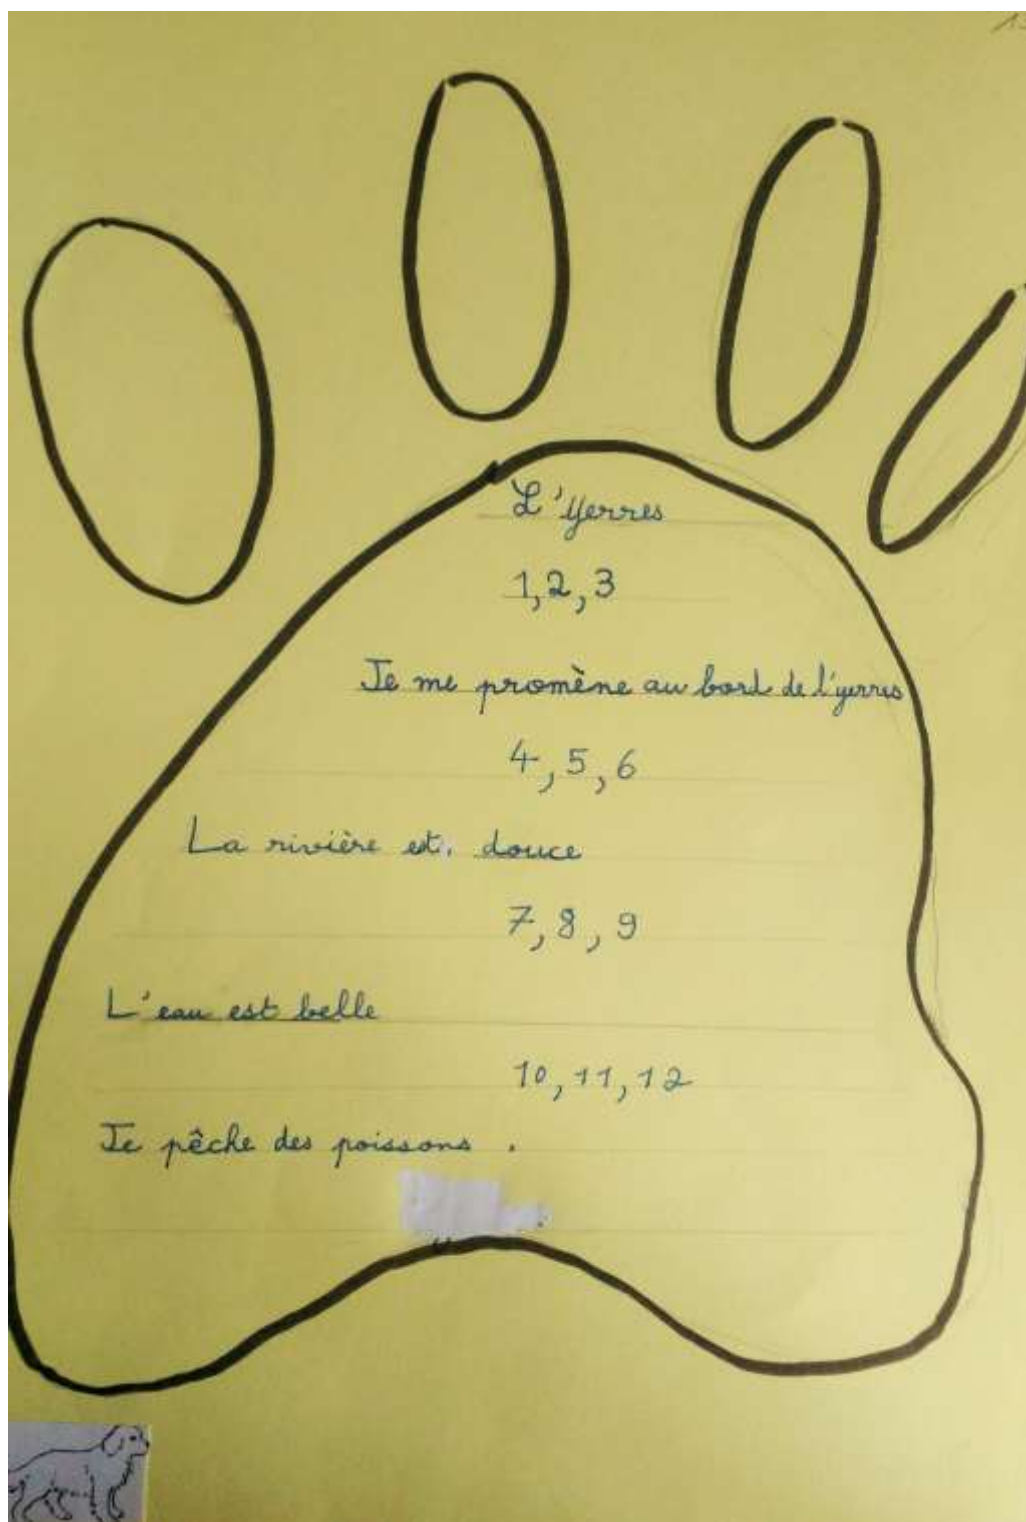 L'Yerres
1, 2, 3
Je me promène au bord de l'yerres
4, 5, 6
La rivière est. douce
7, 8, 9
L'eau est belle
10, 11, 12
Je pêche des poissons.